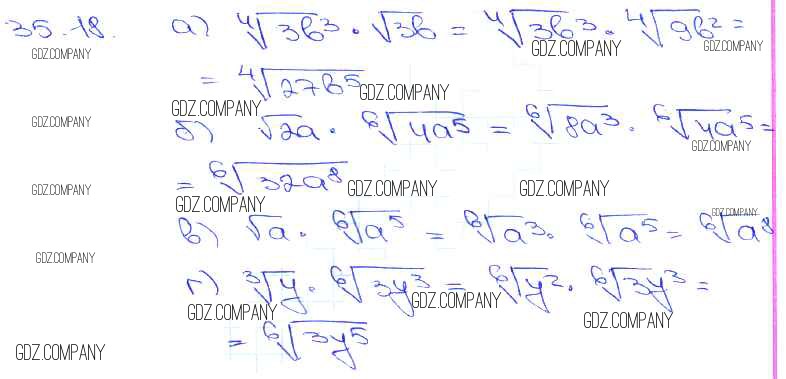 35.18. а) ∜(3b³) · √(3b) = ∜(3b³) · ∜(9b²) =
GDZ.COMPANY GDZ.COMPANY GDZ.COMPANY
= ∜(27b⁵) GDZ.COMPANY
GDZ.COMPANY
GDZ.COMPANY
б) √(2a) · ⁶√(4a⁵) = ⁶√(8a³) · ⁶√(4a⁵) =
GDZ.COMPANY
= ⁶√(32a⁸) GDZ.COMPANY GDZ.COMPANY
GDZ.COMPANY
GDZ.COMPANY
GDZ.COMPANY
в) √a · ⁶√(a⁵) = ⁶√(a³) · ⁶√(a⁵) = ⁶√(a⁸)
GDZ.COMPANY
г) ³√y · ⁶√(3y³) = ⁶√(y²) · ⁶√(3y³) =
GDZ.COMPANY GDZ.COMPANY
GDZ.COMPANY
= ⁶√(3y⁵)
GDZ.COMPANY